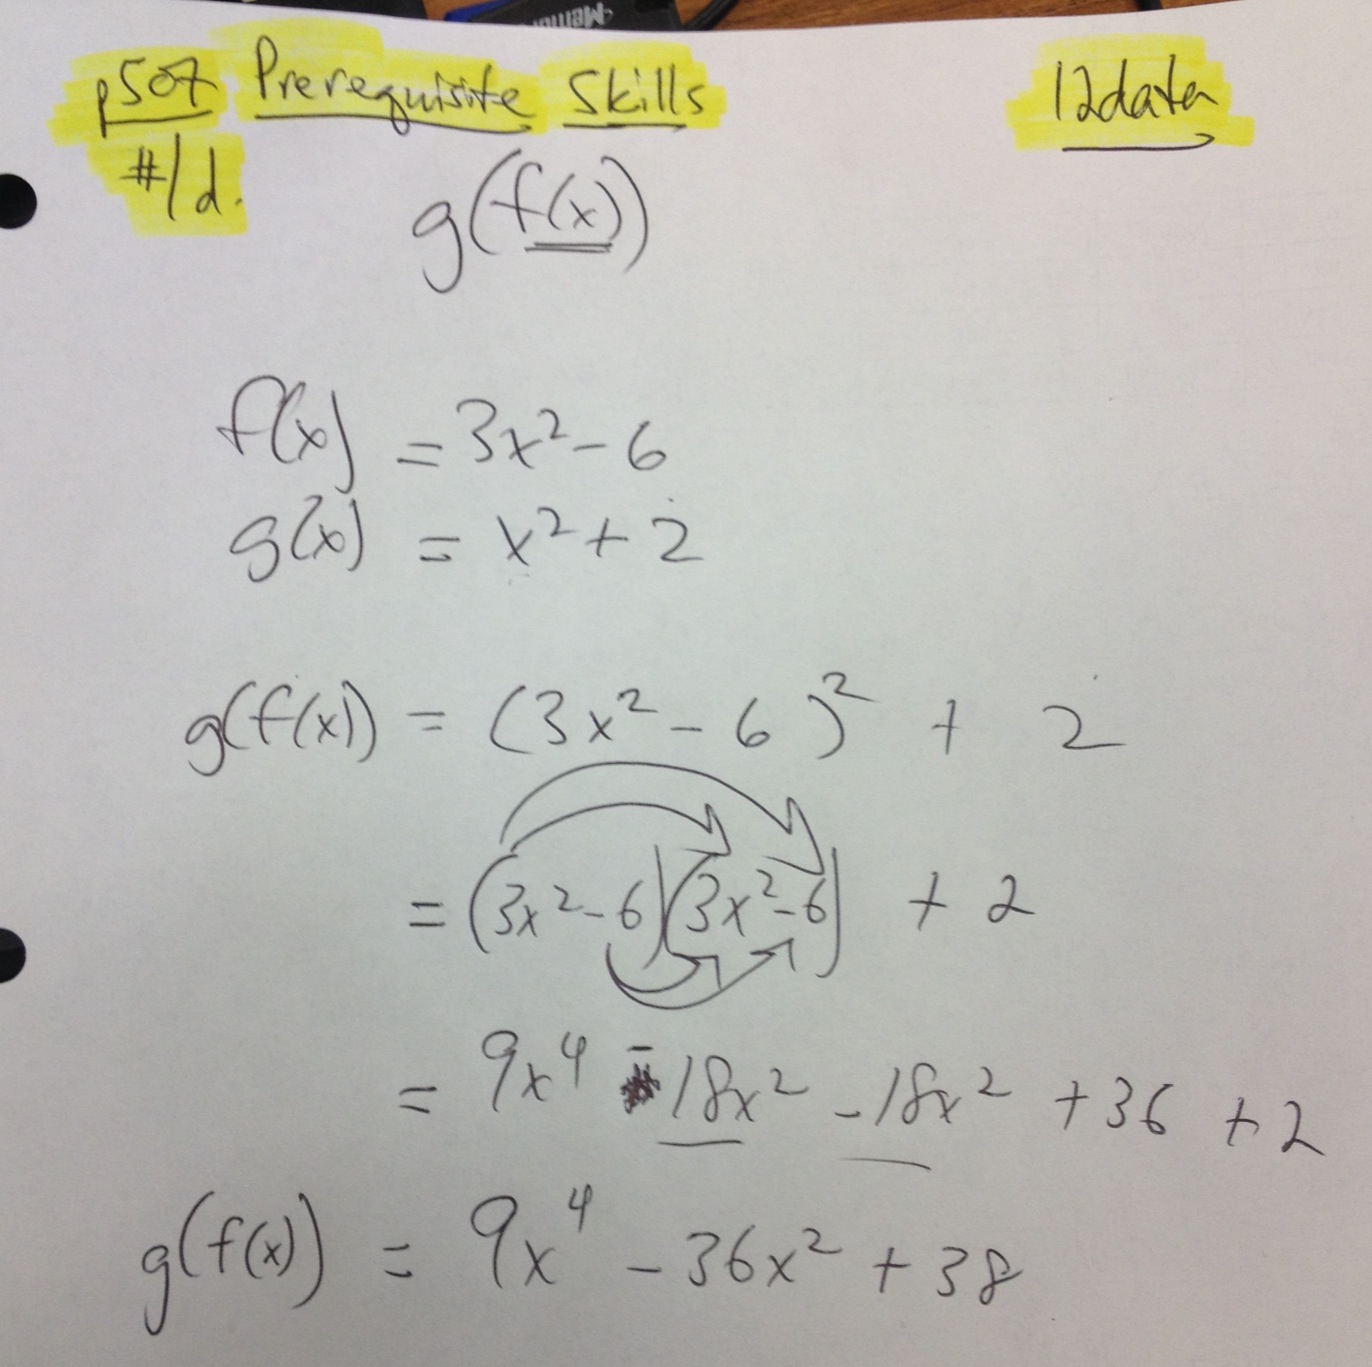 Memor
p507 Prerequisite Skills 12data
#1d.
g(f(x))
f(x) = 3x² - 6
g(x) = x² + 2
g(f(x)) = (3x² - 6)² + 2
= (3x² - 6)(3x² - 6) + 2
= 9x⁴ - 18x² - 18x² + 36 + 2
g(f(x)) = 9x⁴ - 36x² + 38